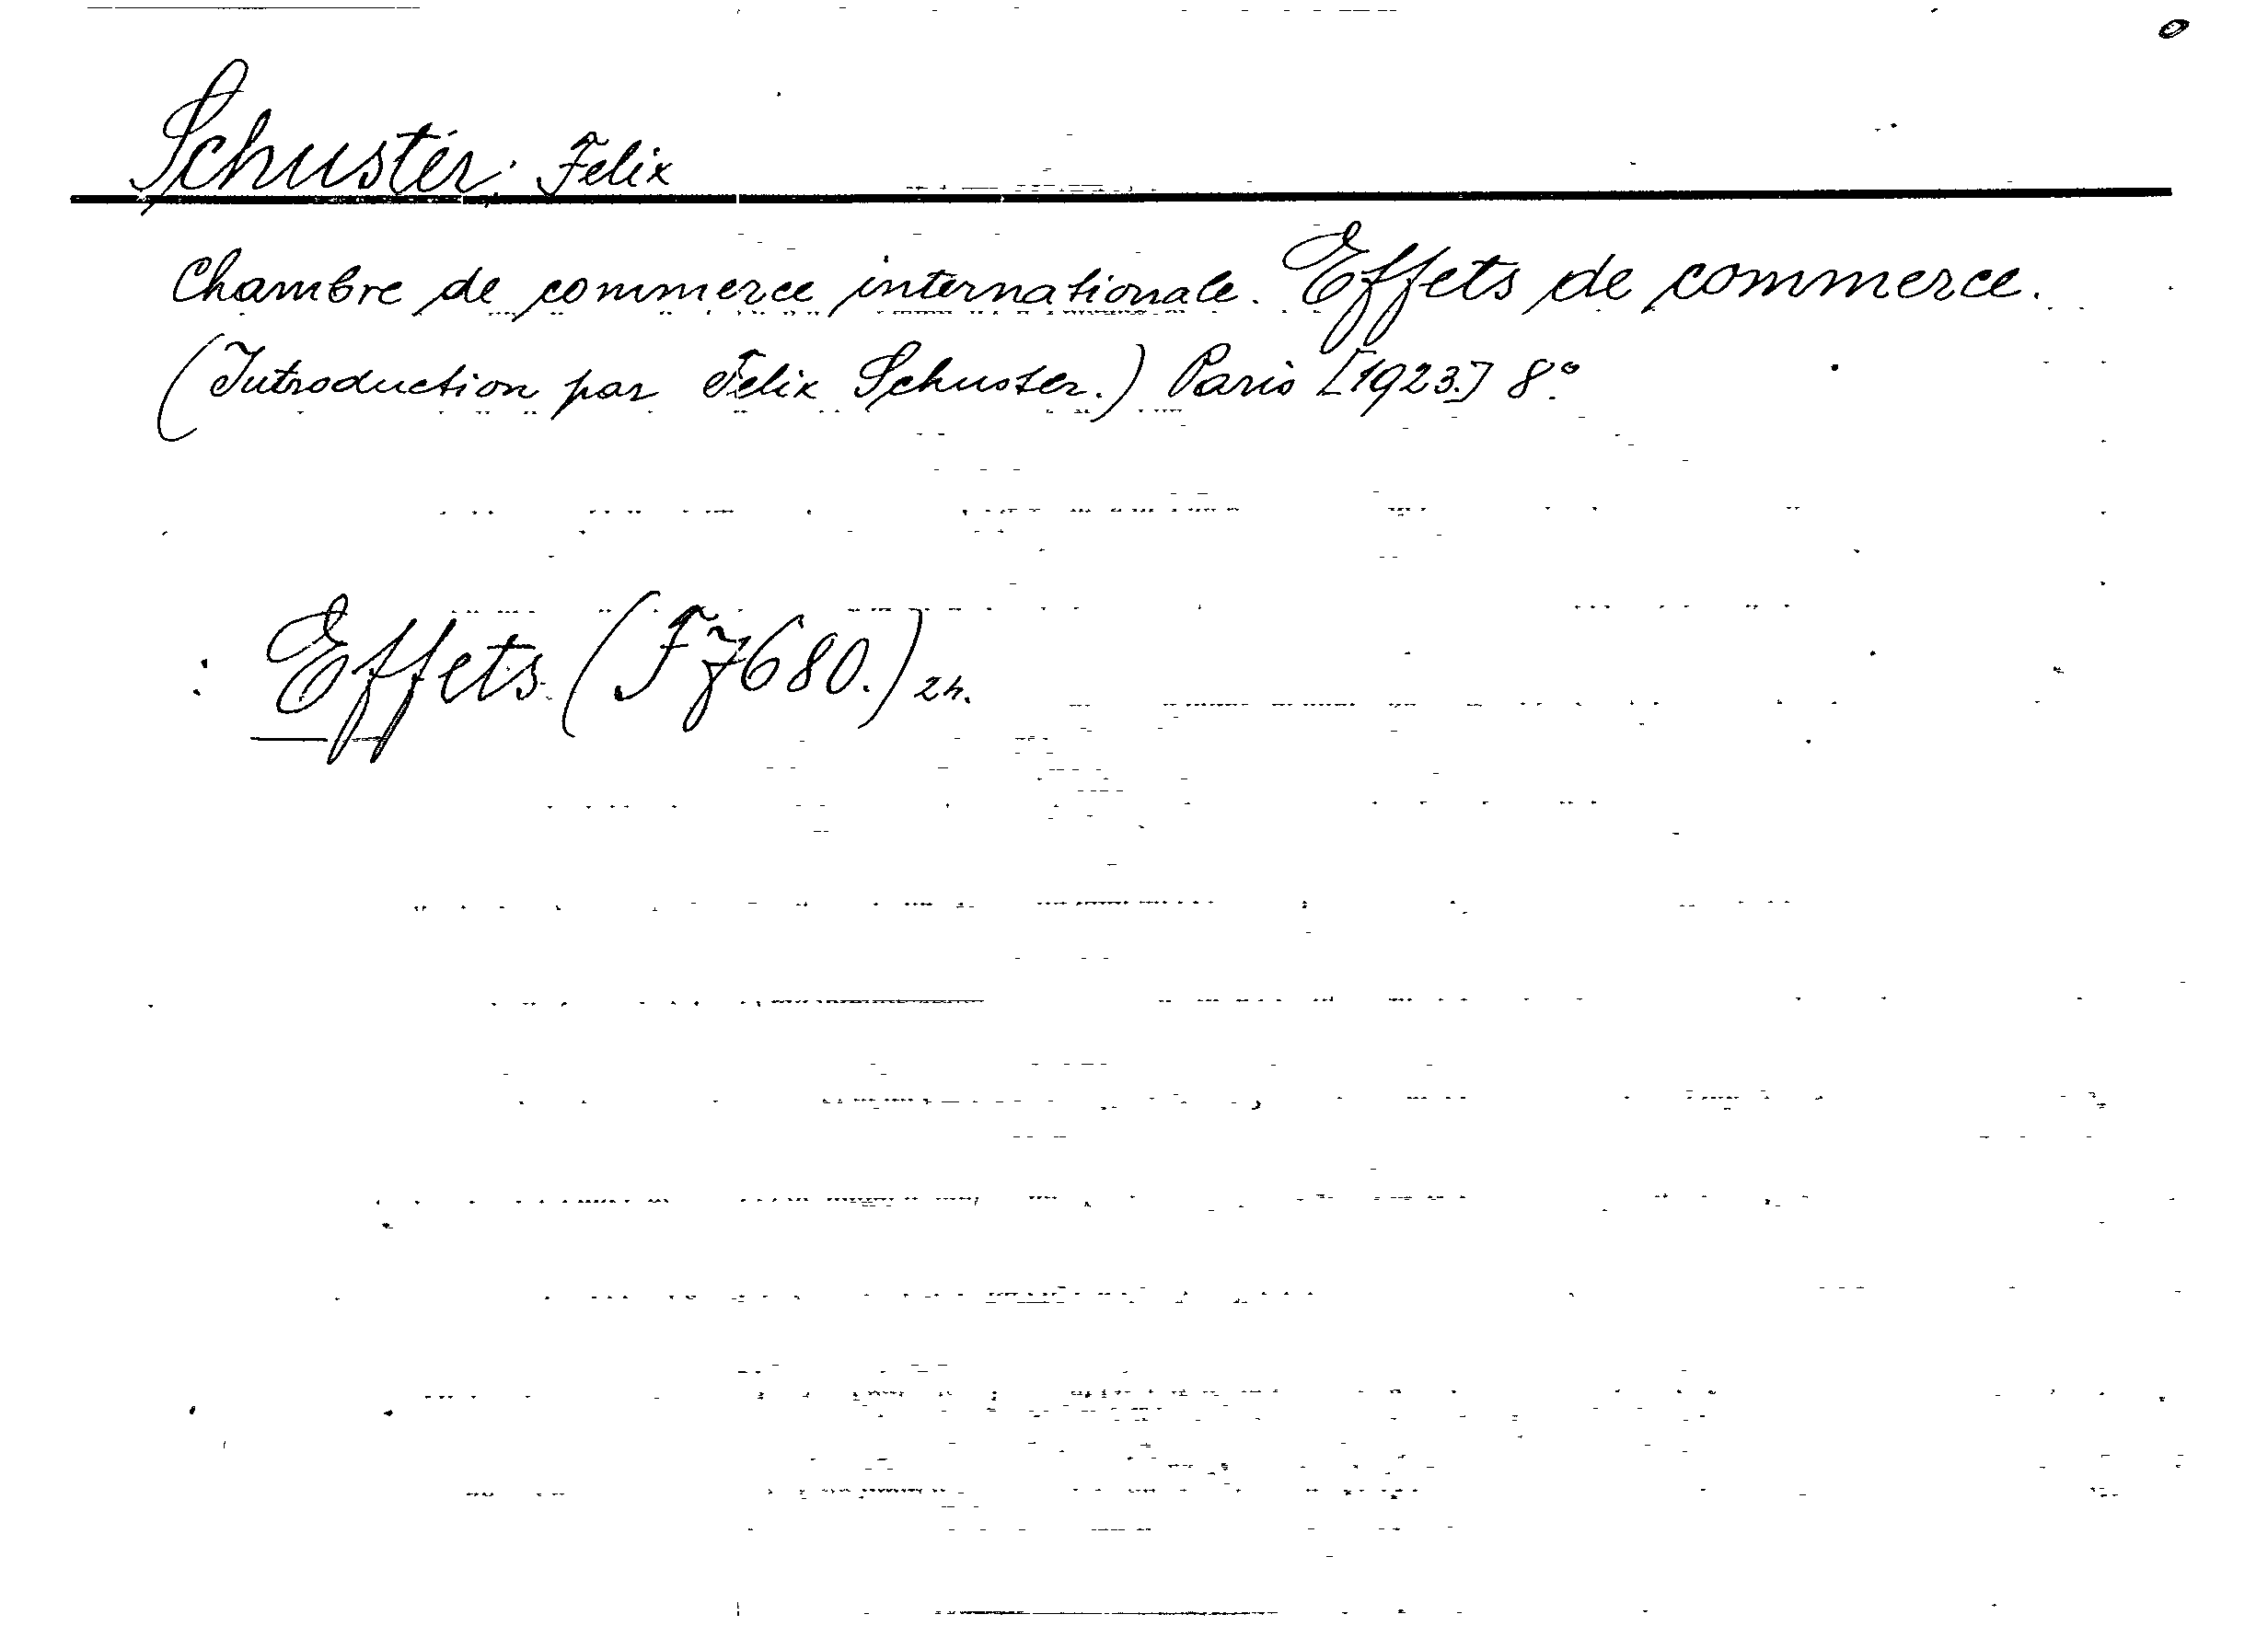 Schuster, Felix
Chambre de commerce internationale. Effets de commerce.
(Introduction par Felix Schuster.) Paris [1923.] 8°.
: Effets (F7680.)